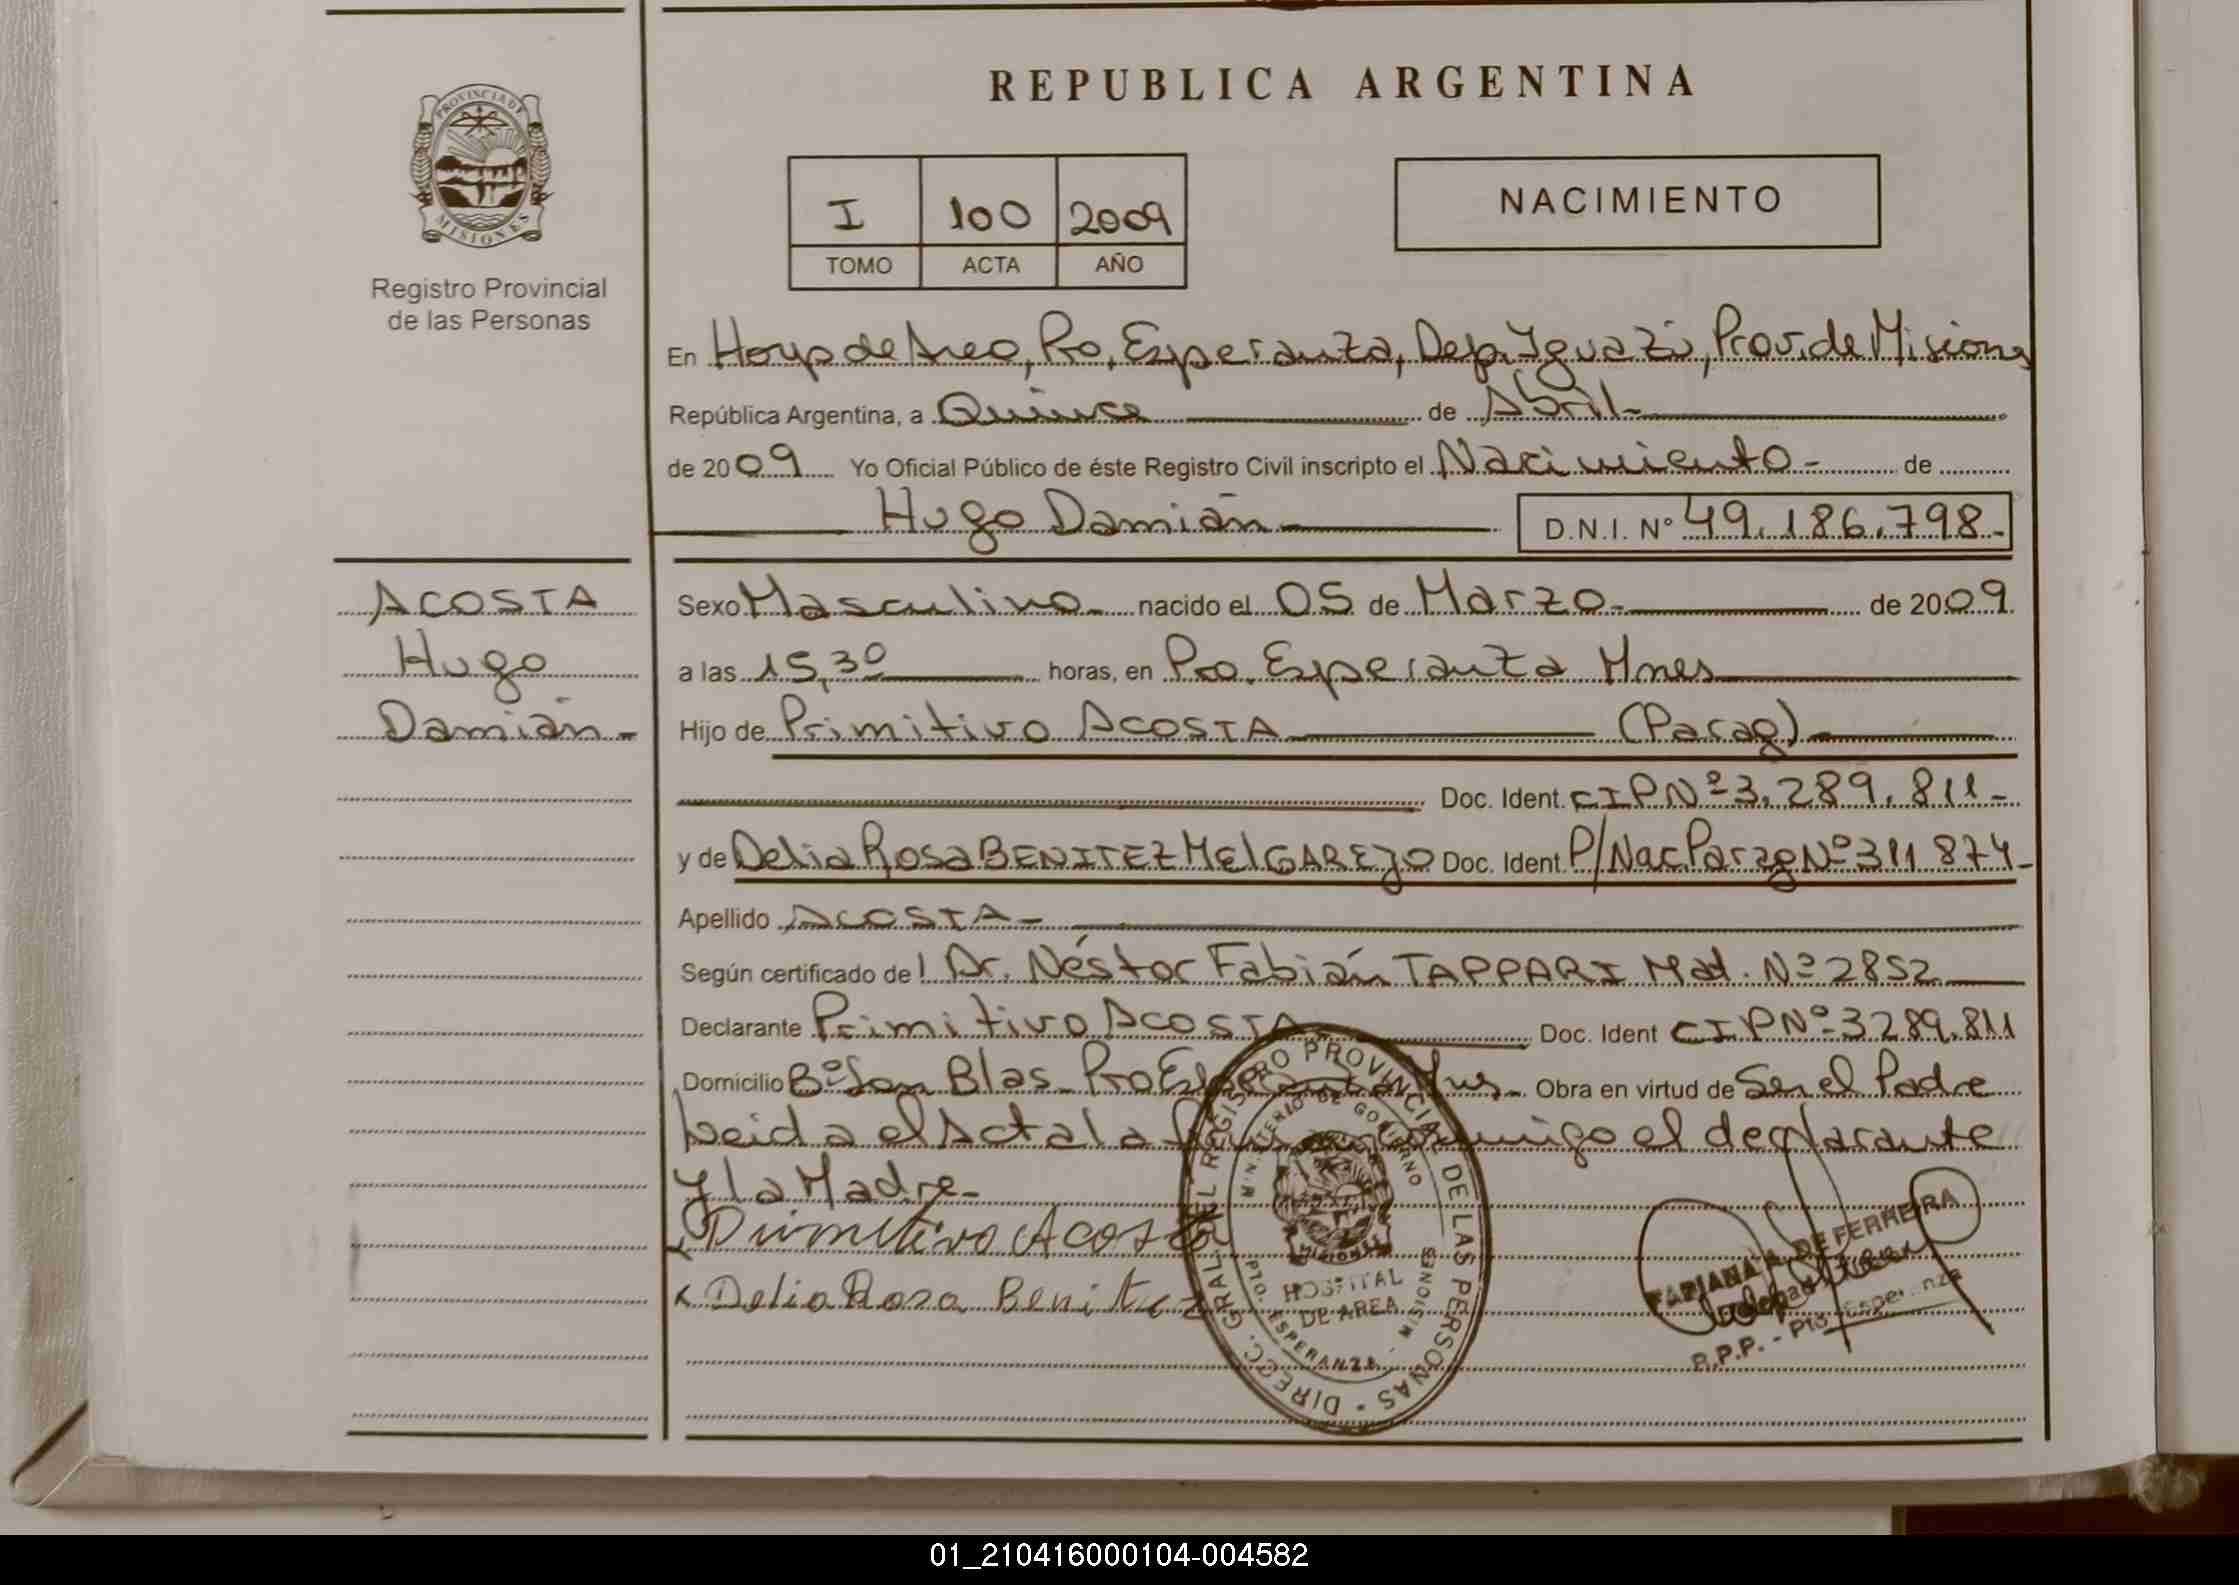 REPUBLICA ARGENTINA
PROVINCIA DE
MISIONES
Registro Provincial
de las Personas
I 100 2009
TOMO ACTA AÑO
NACIMIENTO
En Hosp de Area, Pto. Esperanza, Dep. Iguazú, Prov. de Misiones
República Argentina, a Quince de Abril-
de 2009 Yo Oficial Público de éste Registro Civil inscripto el Nacimiento- de
Hugo Damián D.N.I. N° 49.186.798-
ACOSTA
Hugo
Damián-
Sexo Masculino nacido el 05 de Marzo- de 2009.
a las 15,30 horas, en Pto. Esperanza Mnes
Hijo de Primitivo ACOSTA (Parag)
Doc. Ident. CIPNº3.289.811-
y de Delia Rosa BENITEZ MElGAREJO Doc. Ident. P/Nac.Parag Nº311874-
Apellido ACOSTA-
Según certificado de l Dr. Néstor Fabián TAPPARI Mat. Nº2852
Declarante Primitivo ACOSTA Doc. Ident CIPNº3289.811
Domicilio Bº San Blas- Pto Esperanza Obra en virtud de Ser el Padre
Leida el Acta la conmigo el declarante
y la Madre-
Primitivo Acosta
x Delia Rosa Benitez
DIRECC. GRAL. DEL REGISTRO PROVINCIAL DE LAS PERSONAS
MINISTERIO DE GOBIERNO
MISIONES
HOSPITAL
DE AREA
PTO. ESPERANZA - MISIONES
FABIANA A. DE FERREIRA
R.P.P. - Pto Esperanza
01_210416000104-004582